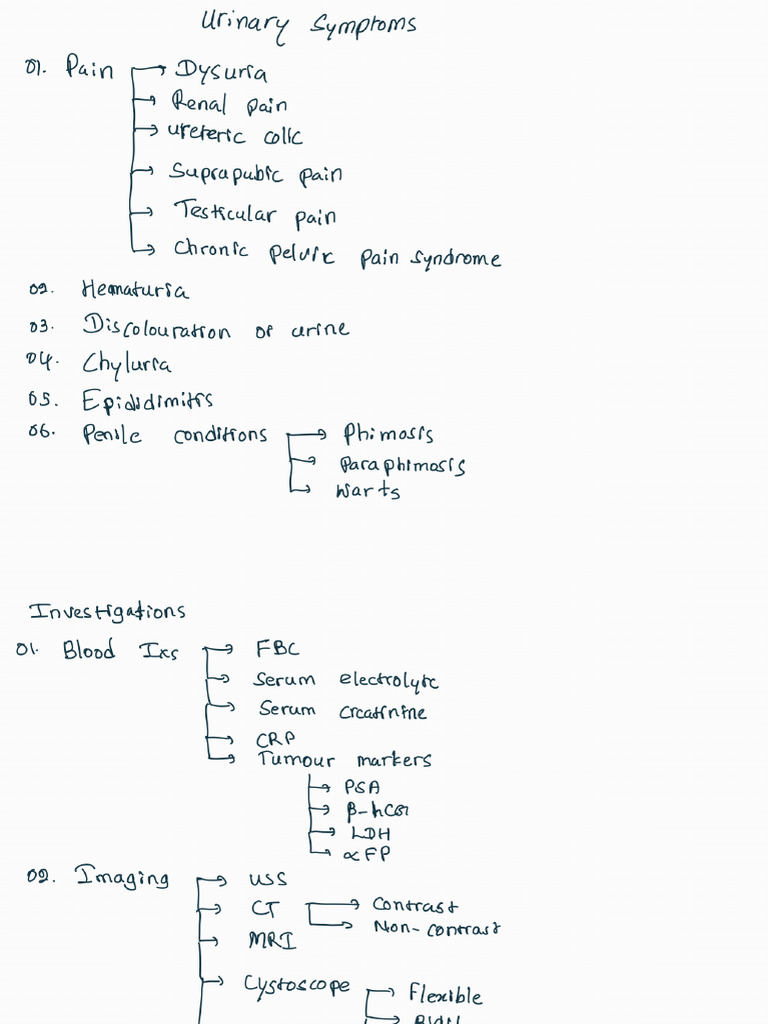 Urinary Symptoms
01. Pain → Dysuria
→ Renal pain
→ ureteric colic
→ Suprapubic pain
→ Testicular pain
→ Chronic pelvic pain syndrome
02. Hematuria
03. Discolouration of urine
04. Chyluria
05. Epididimitis
06. Penile conditions → Phimosis
→ Paraphimosis
→ Warts
Investigations
01. Blood Ixs → FBC
→ Serum electrolyte
→ Serum creatinine
→ CRP
→ Tumour markers
→ PSA
→ β-hCG
→ LDH
→ αFP
02. Imaging → USS
→ CT → Contrast
→ Non-contrast
→ MRI
→ Cystoscope → Flexible